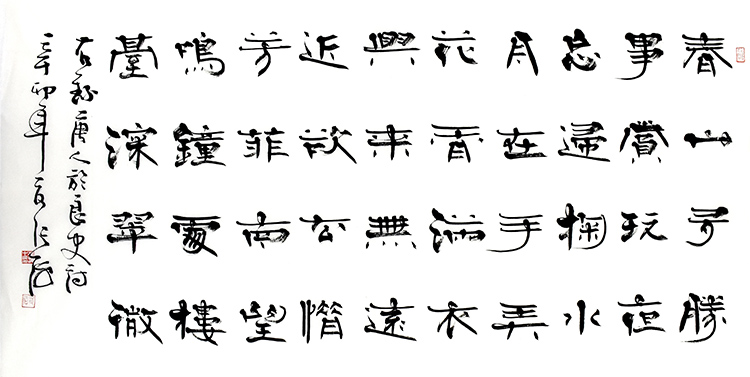 春山多勝
事賞玩夜
忘歸掬水
月在手弄
花香滿衣
興來無遠
近欲去惜
芳菲南望
鳴鐘處樓
臺深翠微
右錄唐人於良史詩
辛卯年